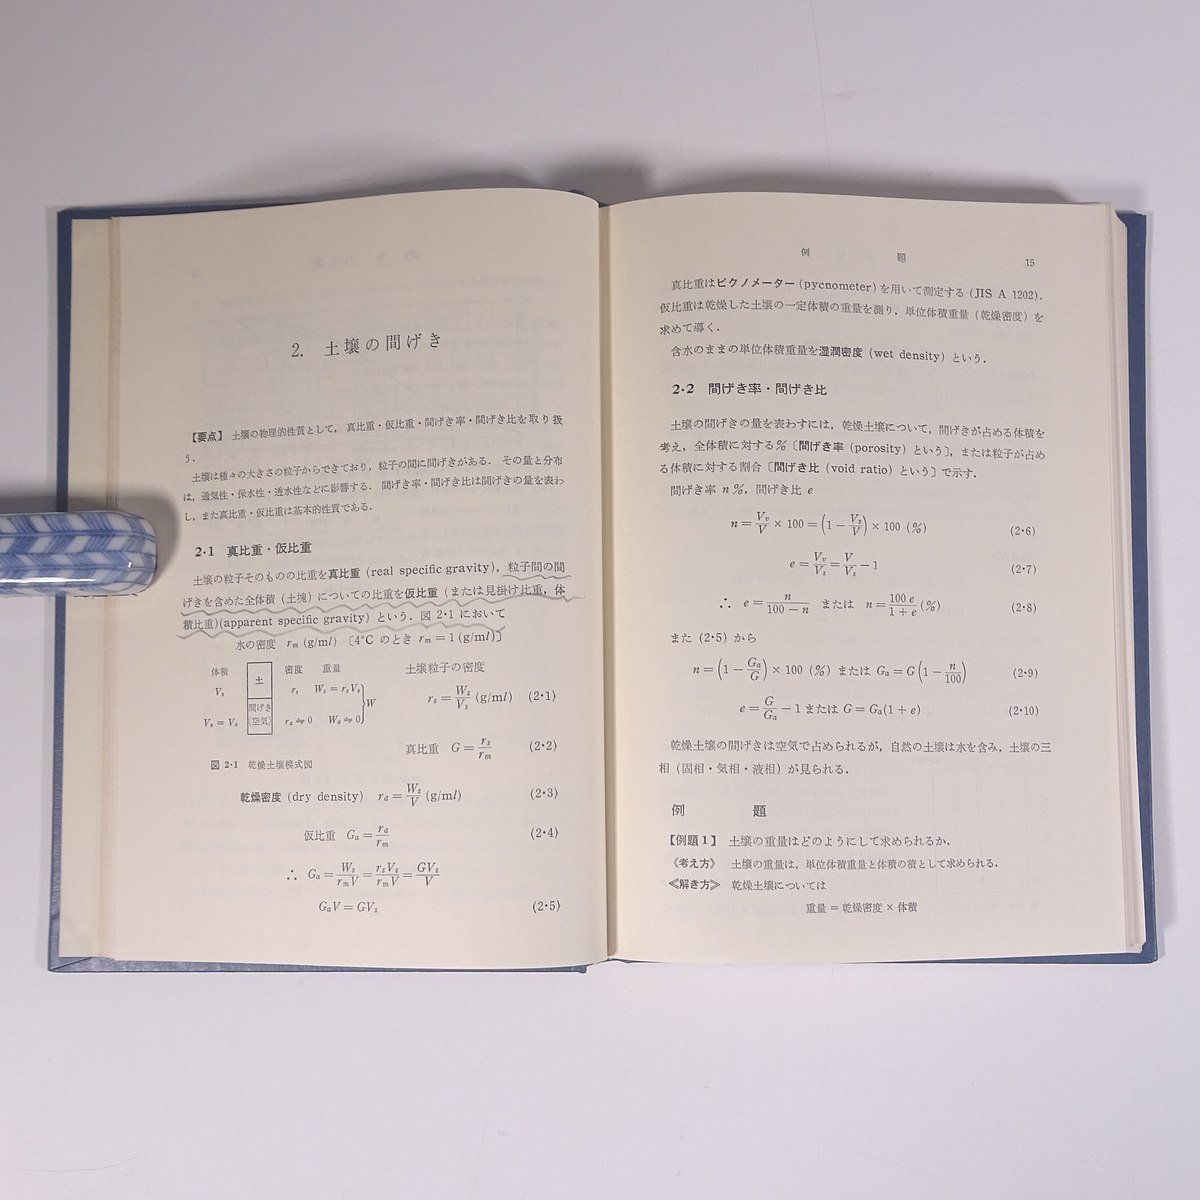 2. 土壌の間げき
【要点】 土壌の物理的性質として, 真比重・仮比重・間げき率・間げき比を取り扱
う.
土壌は種々の大きさの粒子からできており, 粒子の間に間げきがある. その量と分布
は, 通気性・保水性・透水性などに影響する. 間げき率・間げき比は間げきの量を表わ
し, また真比重・仮比重は基本的性質である.
2・1 真比重・仮比重
土壌の粒子そのものの比重を真比重 (real specific gravity), 粒子間の間
げきを含めた全体積 (土塊) についての比重を仮比重 (または見掛け比重, 体
積比重)(apparent specific gravity) という. 図 2・1 において
水の密度 rm (g/ml) 〔4°C のとき rm = 1 (g/ml)〕
体積 密度 重量
Vs 土 rs Ws = rsVs
W
Vv = Va 間げき (空気) ra ≒ 0 Wa ≒ 0
図 2・1 乾燥土壌模式図
土壌粒子の密度
rs = Ws/Vs (g/ml) (2・1)
真比重 G = rs/rm (2・2)
乾燥密度 (dry density) rd = Ws/V (g/ml) (2・3)
仮比重 Ga = rd/rm (2・4)
∴ Ga = Ws/rmV = rsVs/rmV = GVs/V
GaV = GVs (2・5)
例 題 15
真比重はピクノメーター (pycnometer) を用いて測定する (JIS A 1202).
仮比重は乾燥した土壌の一定体積の重量を測り, 単位体積重量 (乾燥密度) を
求めて導く.
含水のままの単位体積重量を湿潤密度 (wet density) という.
2・2 間げき率・間げき比
土壌の間げきの量を表わすには, 乾燥土壌について, 間げきが占める体積を
考え, 全体積に対する%〔間げき率 (porosity) という〕, または粒子が占め
る体積に対する割合〔間げき比 (void ratio) という〕で示す.
間げき率 n %, 間げき比 e
n = Vv/V × 100 = (1 − Vs/V) × 100 (%) (2・6)
e = Vv/Vs = V/Vs − 1 (2・7)
∴ e = n/(100 − n) または n = 100 e/(1 + e) (%) (2・8)
また (2・5) から
n = (1 − Ga/G) × 100 (%) または Ga = G(1 − n/100) (2・9)
e = G/Ga − 1 または G = Ga(1 + e) (2・10)
乾燥土壌の間げきは空気で占められるが, 自然の土壌は水を含み, 土壌の三
相 (固相・気相・液相) が見られる.
例 題
【例題 1】 土壌の重量はどのようにして求められるか.
《考え方》 土壌の重量は, 単位体積重量と体積の積として求められる.
≪解き方≫ 乾燥土壌については
重量 = 乾燥密度 × 体積